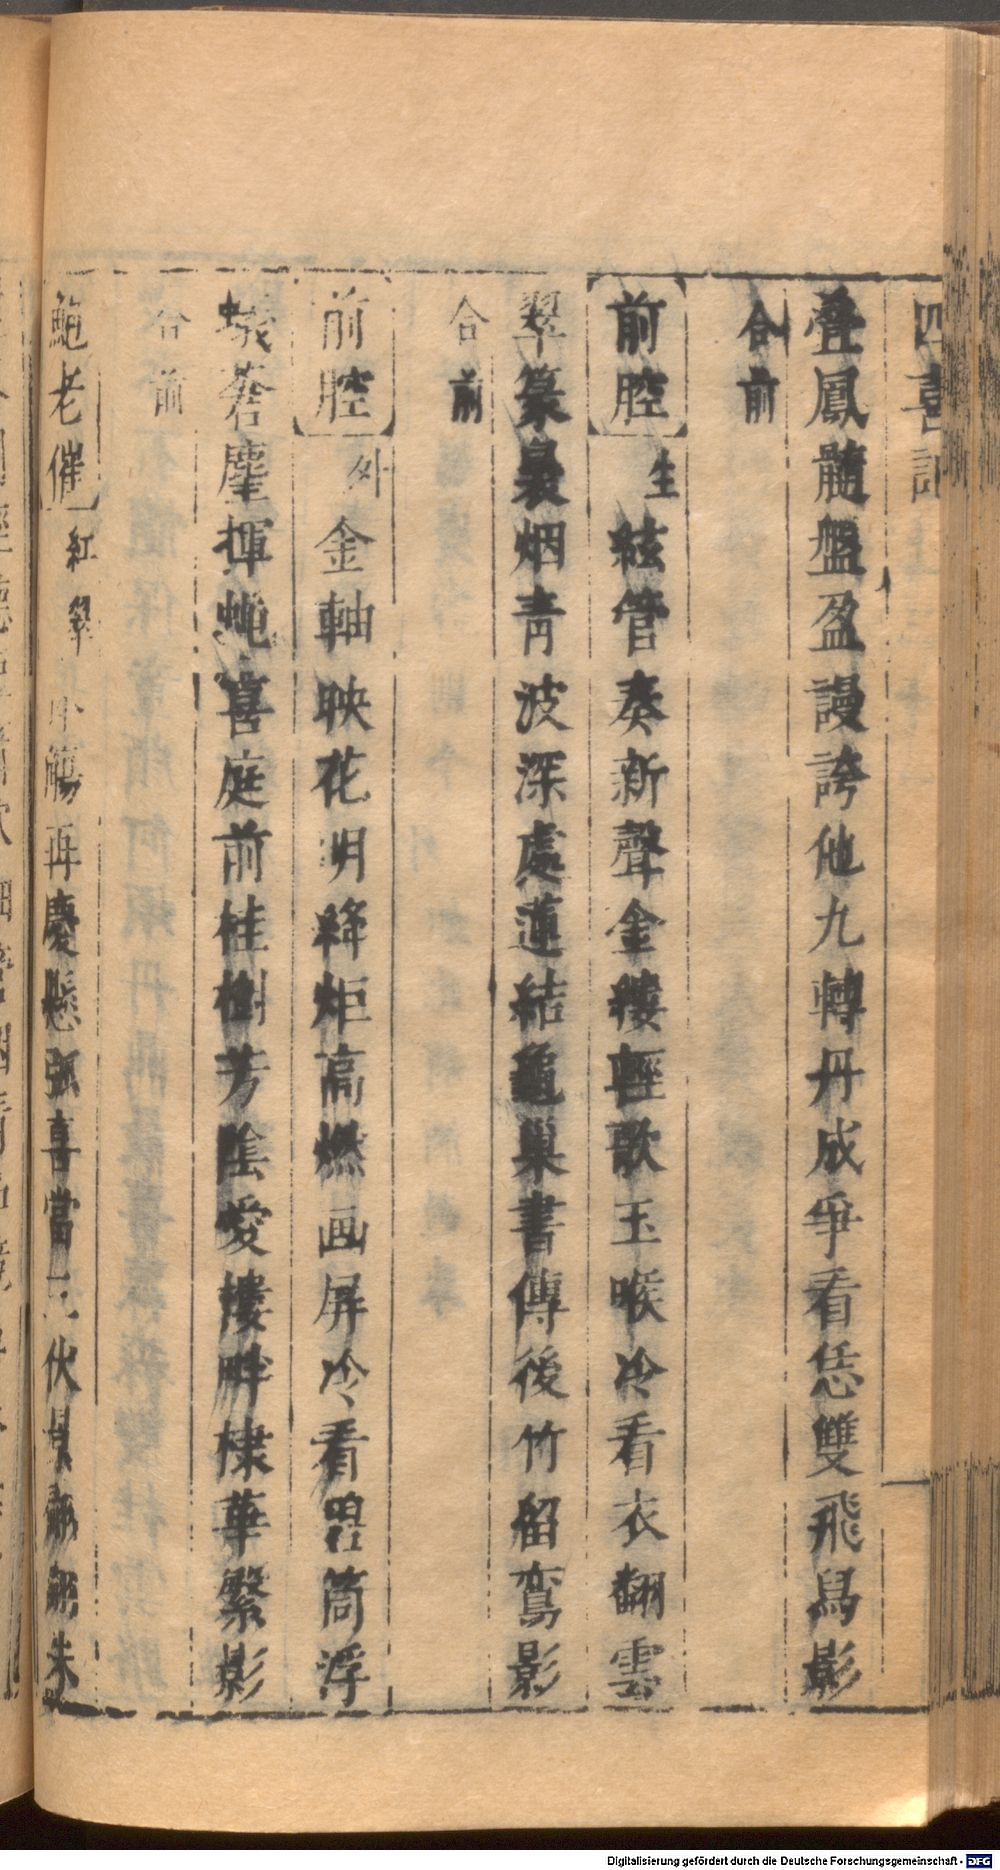 四喜記
叠鳳髓盤盈謾誇他九轉丹成爭看恁雙飛舄影
合前
前腔 生 絃管奏新聲金縷輕歌玉喉冷看衣翻雲
翠篆裊烟青波深處蓮結龜巢書傳後竹留鸞影
合前
前腔 外 金軸映花明絳炬高燃画屏冷看碧筒浮
蟻蒼麈揮蝇喜庭前桂樹芳陰愛樓畔棣華繁影
合前
鮑老催 紅 觴再慶懸弧喜當 伏 翻翻朱
Digitalisierung gefördert durch die Deutsche Forschungsgemeinschaft - DFG